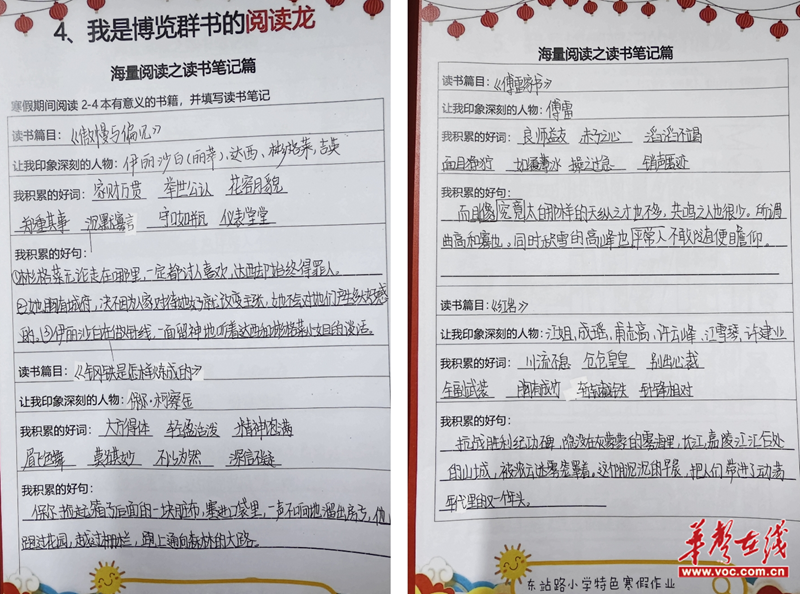 4、我是博览群书的阅读龙
海量阅读之读书笔记篇
寒假期间阅读2-4本有意义的书籍，并填写读书笔记
读书篇目：《傲慢与偏见》
让我印象深刻的人物：伊丽沙白(丽萃)、达西、彬格莱、吉英
我积累的好词：家财万贯 举世公认 花容月貌
郑重其事 沉默寡言 守口如瓶 仪表堂堂
我积累的好句：
①彬格莱无论走在哪里，一定都讨人喜欢，达西却始终得罪人。
②她很有城府，决不因为人家对待她好就改变主张，她不会对他们产生多大好感
的。③伊丽沙白在做针线，一面留神地听着达西和彬格莱小姐的谈话。
读书篇目：《钢铁是怎样炼成的》
让我印象深刻的人物：保尔·柯察金
我积累的好词：大方得体 轻盈活泼 精神饱满
眉飞色舞 莫名其妙 不以为然 深信不疑
我积累的好句：
保尔抱起箱子后面的一块脏布，塞进口袋里，一声不响地溜出房子，他
跑过花园，越过栅栏，跑上通向森林的大路。
海量阅读之读书笔记篇
读书篇目：《傅雷家书》
让我印象深刻的人物：傅雷
我积累的好词：良师益友 赤子之心 滔滔不竭
面目狰狞 如履薄冰 操之过急 销声匿迹
我积累的好句：
而且像究竟太白那样的天纵之才也不多，共鸣之人也很少。所谓
曲高和寡也，同时积雪的高峰也平常人不敢随便瞻仰。
读书篇目：《红岩》
让我印象深刻的人物：江姐、成瑶、甫志高、许云峰、江雪琴、许建业
我积累的好词：川流不息 仓仓皇皇 别出心裁
全副武装 胸有成竹 斩钉截铁 针锋相对
我积累的好句：
抗战胜利纪功碑，隐没在灰蒙蒙的雾海里，长江、嘉陵江汇合处
的山城，被浓云迷雾笼罩着。这个阴沉沉的早晨，把人们带进了动荡
年代里的又一个年头。
东站路小学特色寒假作业
华声在线
www.voc.com.cn